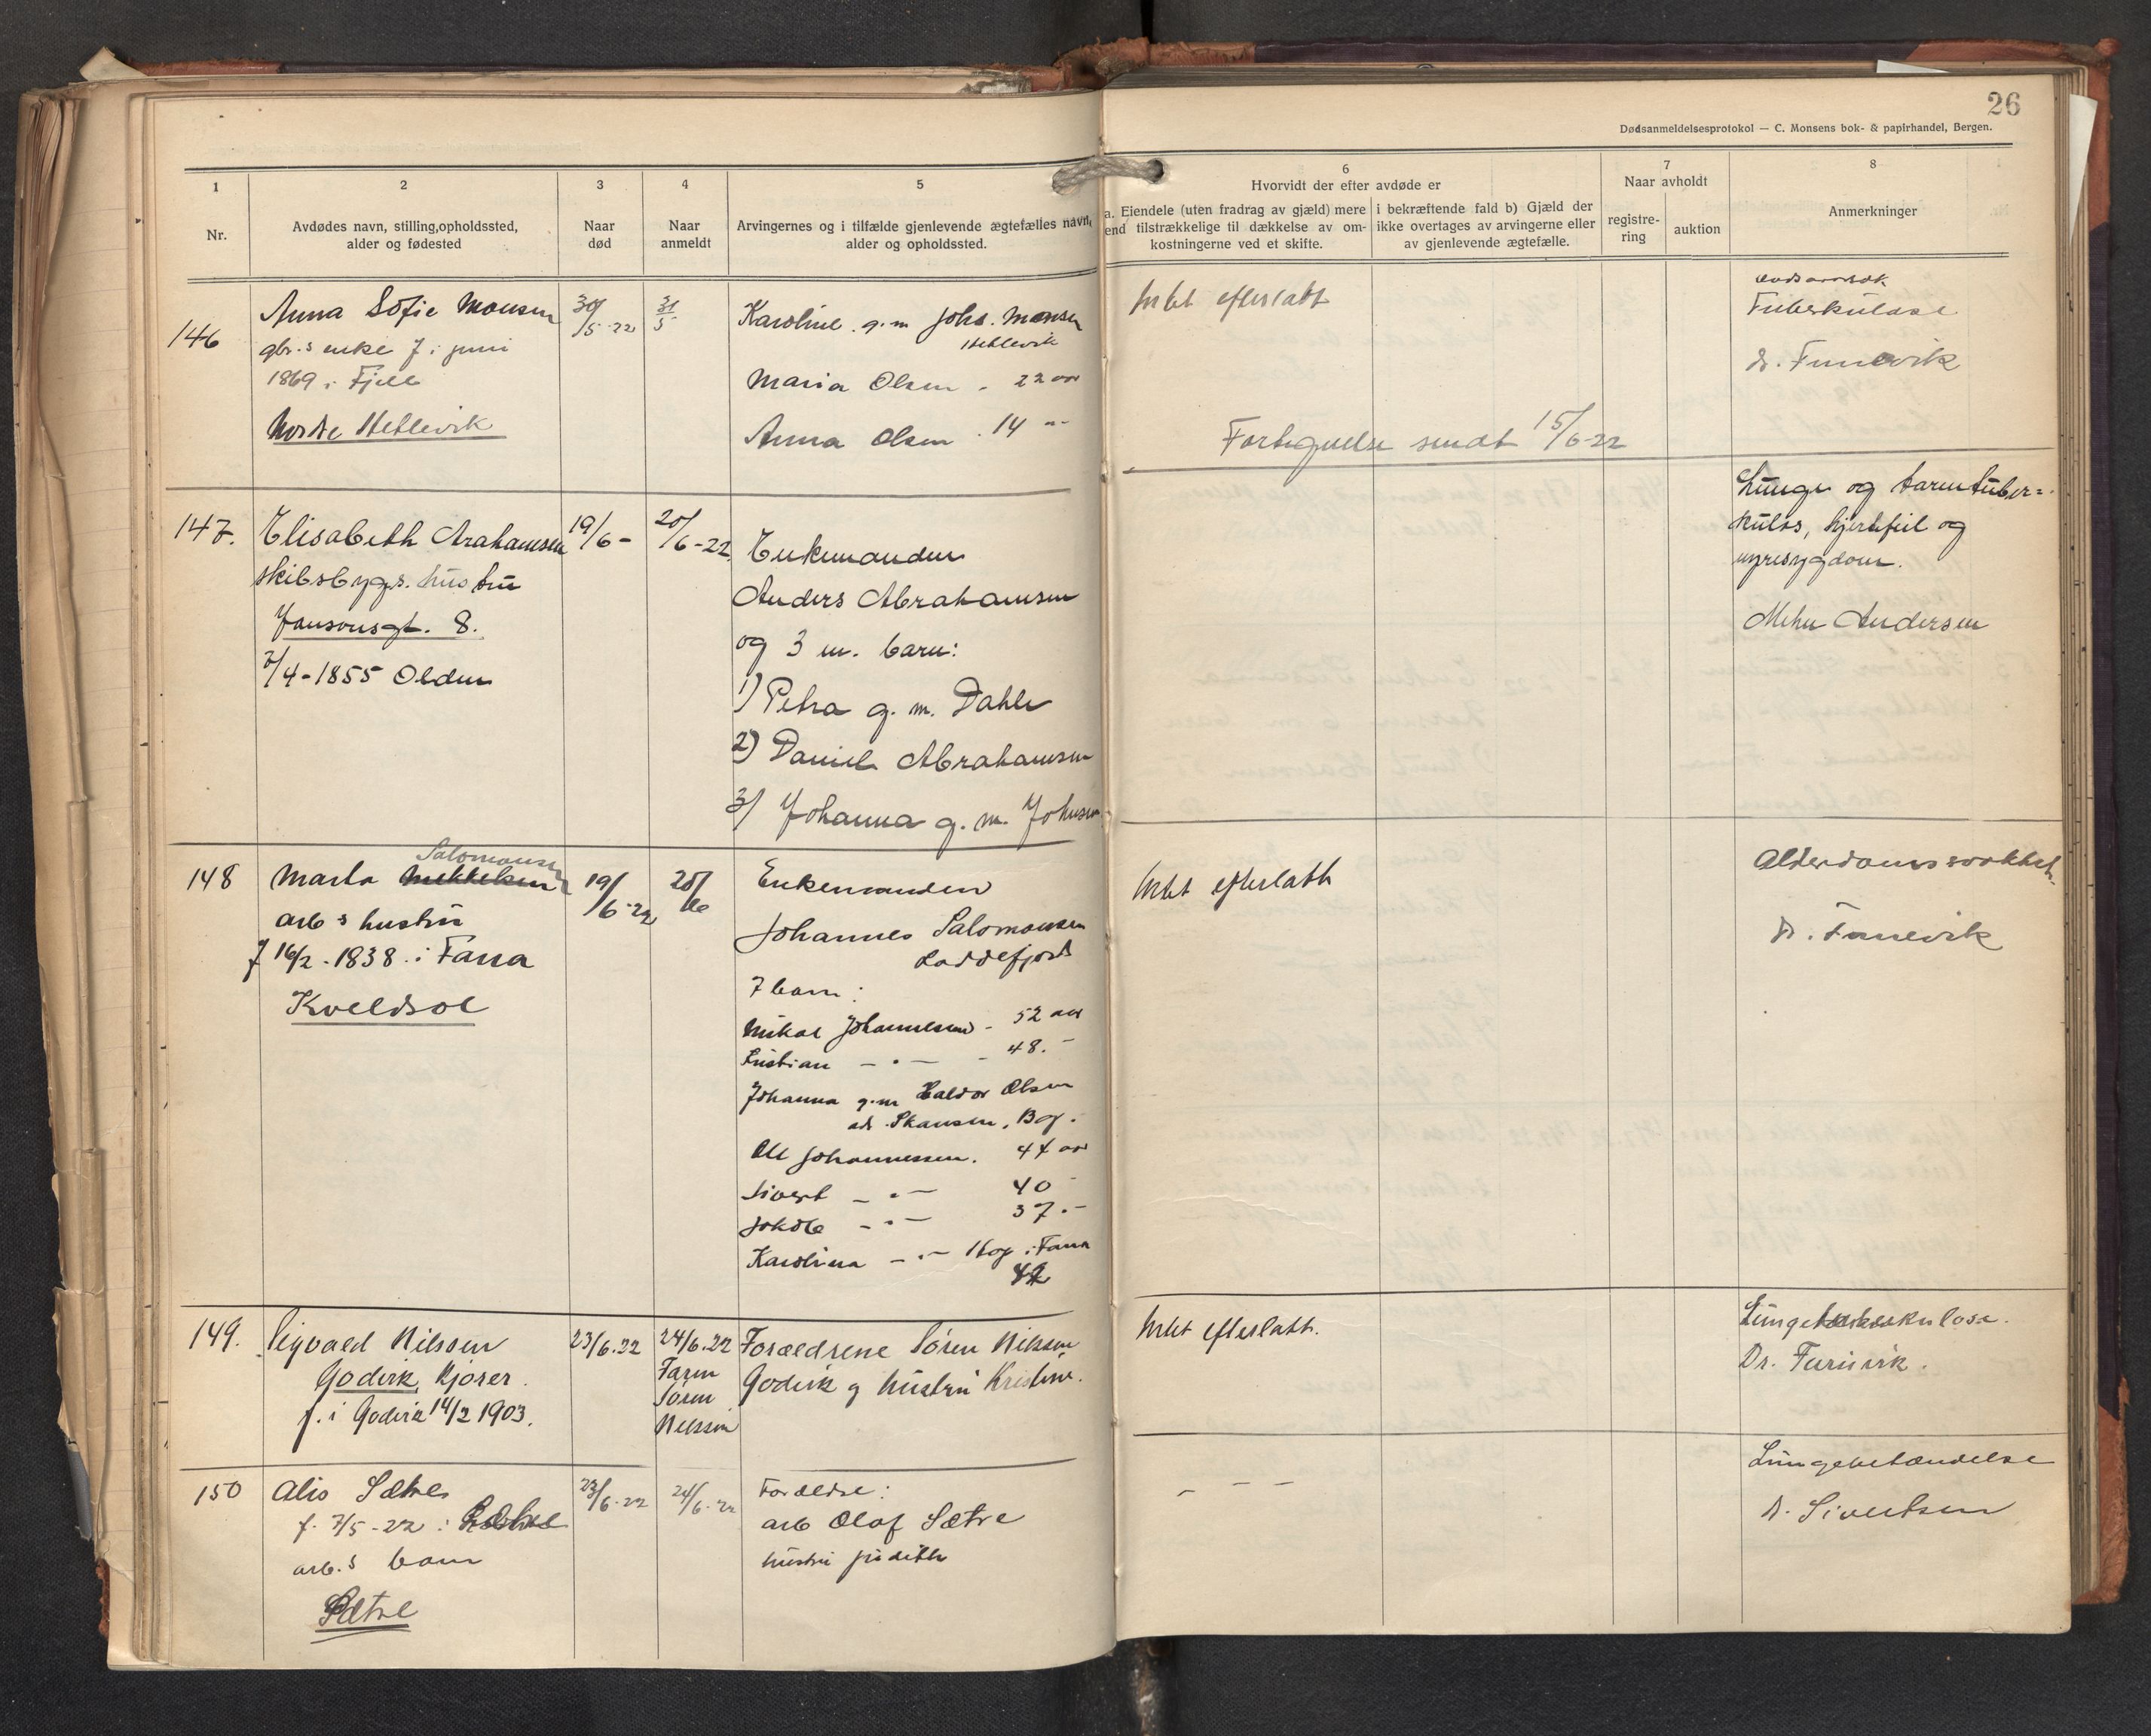 26
Dødsanmeldelsesprotokol — C. Monsens bok- & papirhandel, Bergen.
1
Nr.
2
Avdødes navn, stilling,opholdssted,
alder og fødested
3
Naar
død
4
Naar
anmeldt
5
Arvingernes og i tilfælde gjenlevende ægtefælles navn,
alder og opholdssted.
6
Hvorvidt der efter avdøde er
a. Eiendele (uten fradrag av gjæld) mere
end tilstrækkelige til dækkelse av om-
kostningerne ved et skifte.
i bekræftende fald b) Gjæld der
ikke overtages av arvingerne eller
av gjenlevende ægtefælle.
7
Naar avholdt
registre-
ring
auktion
8
Anmerkninger
146
Anna Sofie Monsen
gbr.s enke f i juni
1869 i Fjell
Nordre Hetlevik
30/5-22
31/5
Karoline g.m Johs. Monsen
Hetlevik
Maria Olsen - 22 aar
Anna Olsen 14 "
Intet efterlatt
Fortegnelse sendt 15/6-22
Tuberkulose
147.
Elisabeth Arahamsen
skibsbygs. hustru
Jansonsgt. 8.
7/4-1855 Olden
19/6-
20/6-22
Enkemanden
Anders Abrahamsen
og 3 m. barn:
1) Petra g. m. Dahle
2) Daniel Abrahamsen
3) Johanna g. m. Johnsen
Lunge og tarmtuber=
kulos, hjertefeil og
nyresygdom.
Andersen
148
Salomonsen
Marta Mikkelsen
arb s hustru
f 16/2-1838 i Fana
Kveldsol
19/6-22
20/6
Enkemanden
Johannes Salomonsen
Loddefjord
7 barn:
Mikal Johannesen - 52 aar
Kristian - " - - 48. -
Johanna g.m Haldor Olsen
ad. Skansen, Bg.
Ole Johannessen. 44 aar
Sivert - " - 40
Jakob - " - 37. -
Karolina - " - Hop i Fana
42
Intet efterlatt
Alderdomssvakhet
149.
Sigvald Nilssen
Godvik, Kjører
f. i Godvik 14/2 1903.
23/6.22
24/6.22
Faren
Søren
Nilssen
Forældrene Søren Nilssen
Godvik og hustru Kristine.
Intet efterlatt.
Lungetuberkulose.
150
Alis Sætre
f. 7/5-22 i
arb.s barn
Sætre
23/6-22
24/6-22
Forældre:
arb Olaf Sætre
hustru Judith
- - -
Lungebetændelse
D. Sivertsen